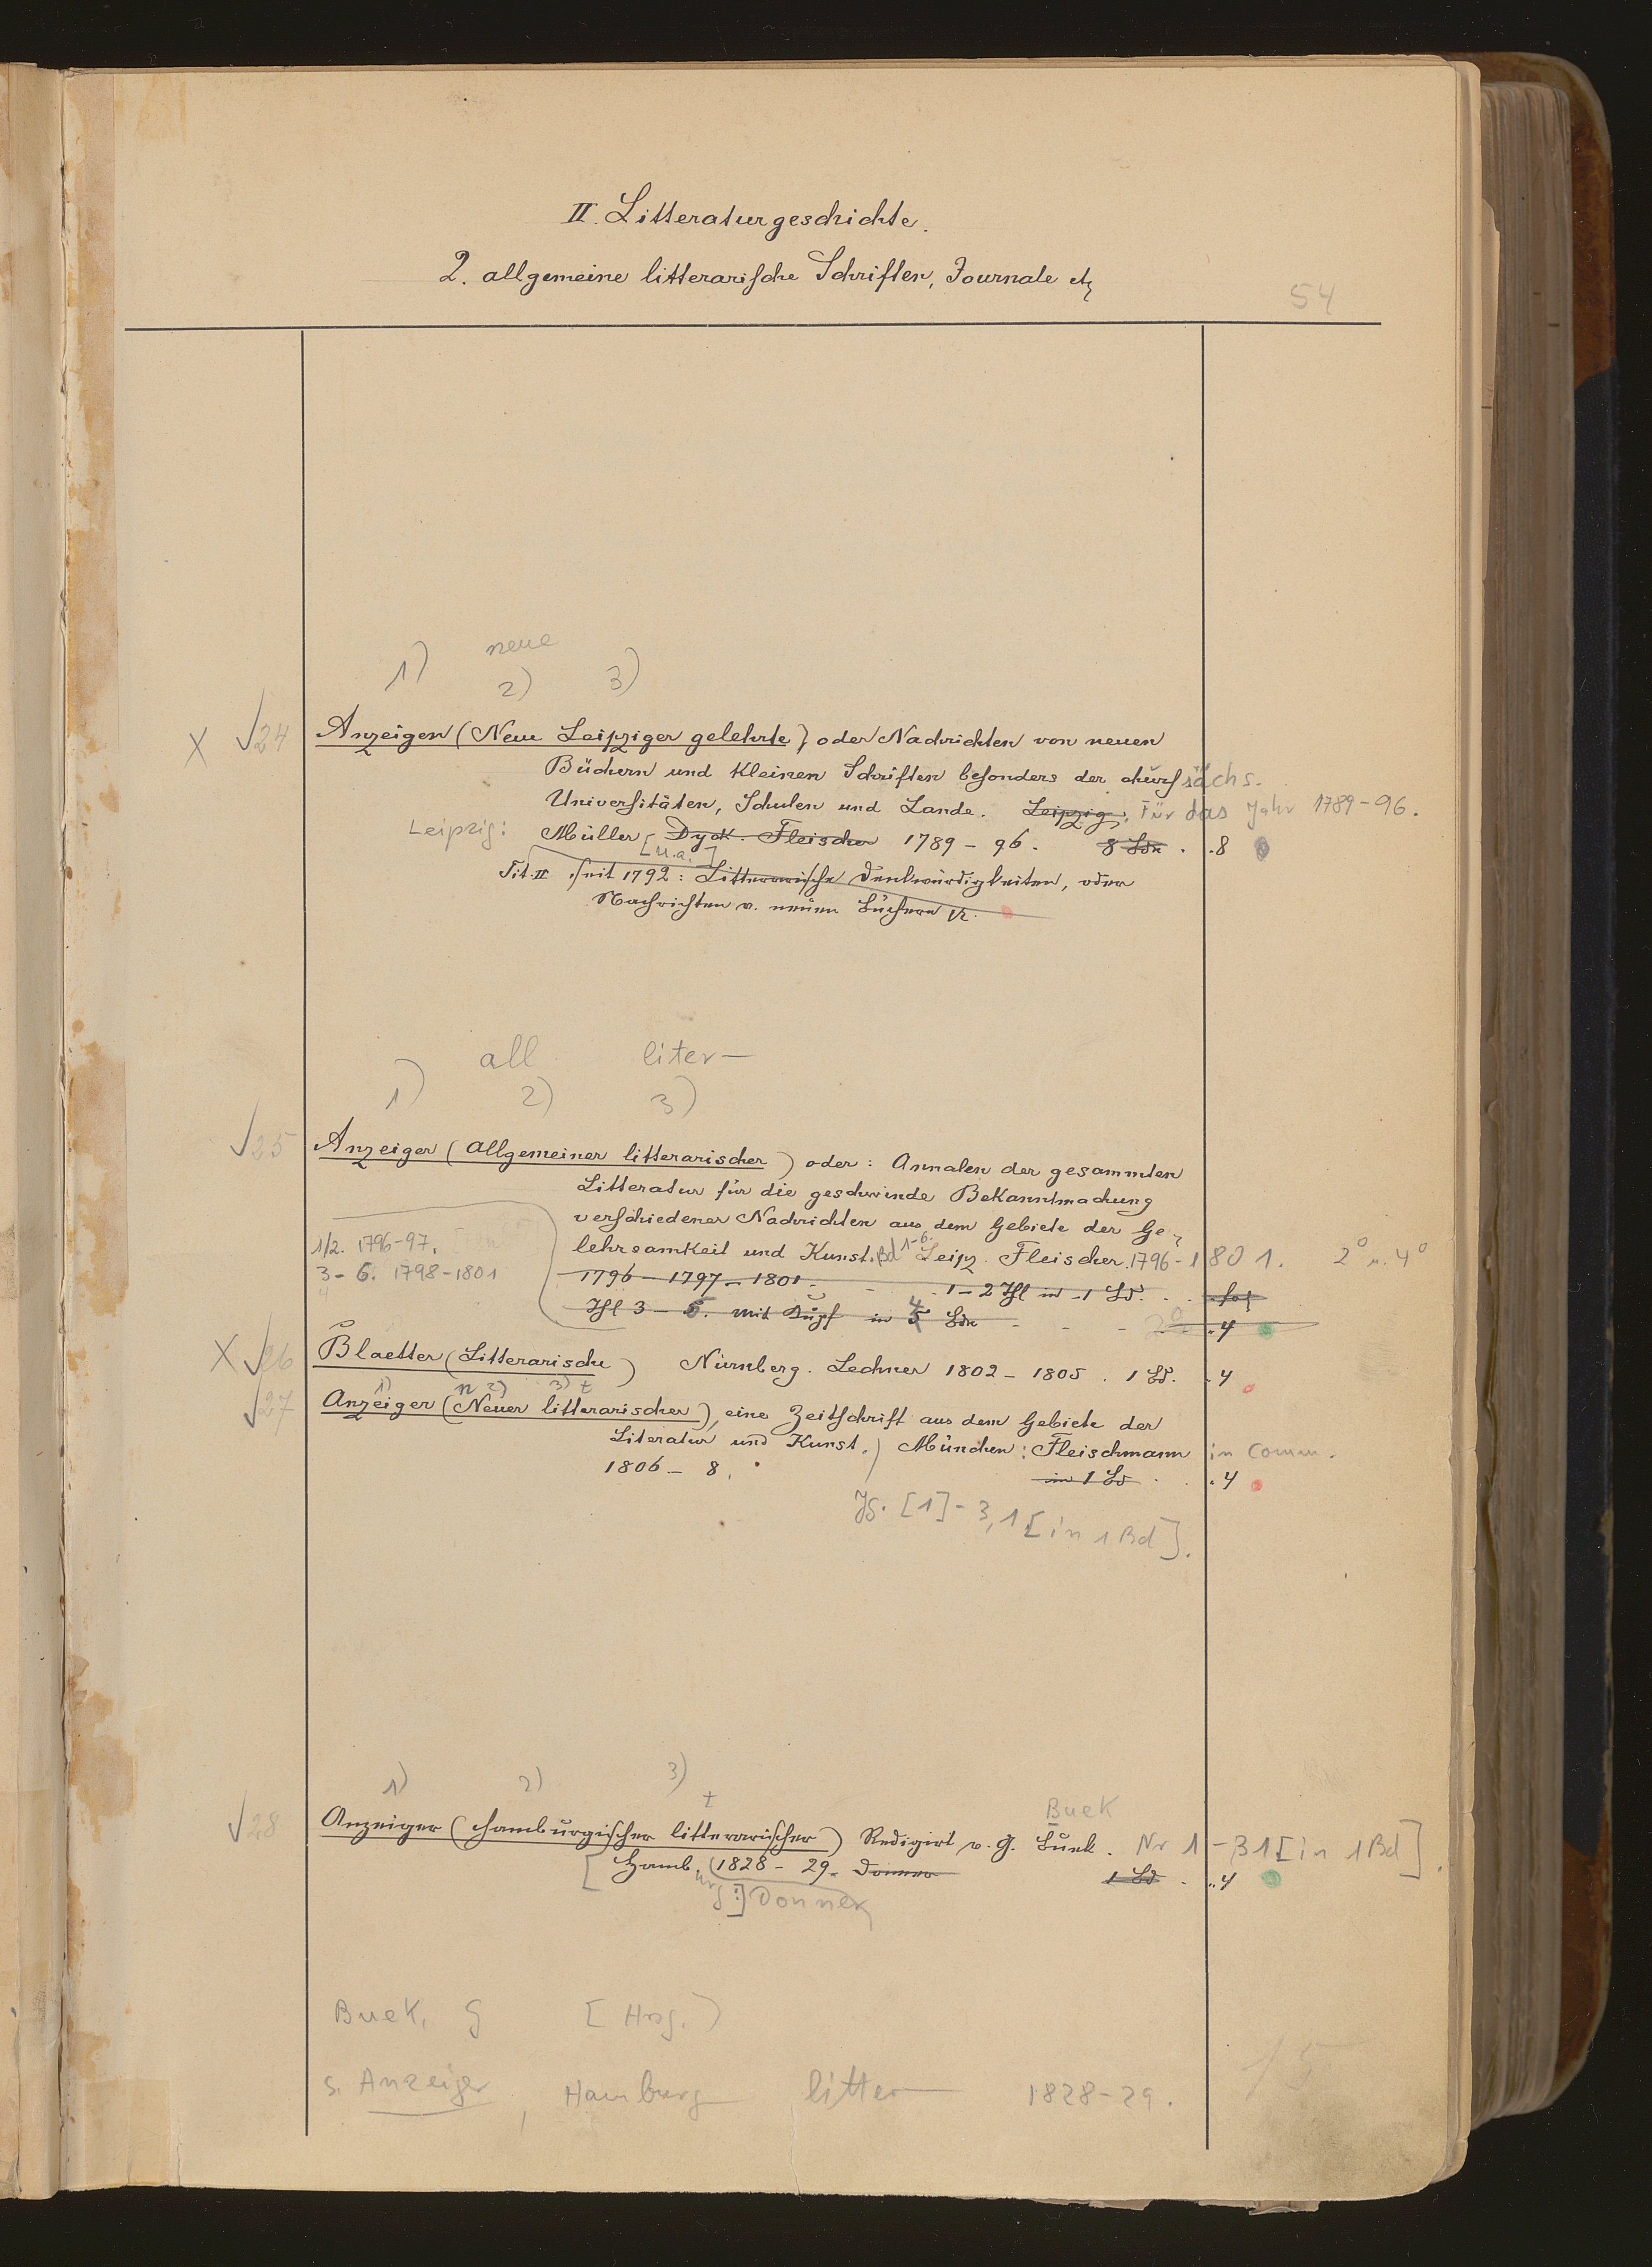 II. Litteraturgeschichte.
2. allgemeine litterarische Schriften, Journale etz
54
neue
1) 2) 3)
X √ 24 Anzeigen (Neue Leipziger gelehrte) oder Nachrichten von neuen
Büchern und kleinen Schriften besonders der chursächs.
Universitäten, Schulen und Lande. Leipzig. Für das Jahr 1789-96.
Leipzig: Müller, Dyck. Fleischer 1789 - 96. 8 Bde . .8
[u.a.]
Tit. II seit 1792: Litterarische Denkwürdigkeiten, oder
Nachrichten v. neuen Büchern
all liter—
1) 2) 3)
√ 25 Anzeiger (allgemeiner litterarischer) oder: Annalen der gesammten
Litteratur für die geschwinde Bekanntmachung
verschiedener Nachrichten aus dem Gebiete der Ge-
lehrsamkeit und Kunst. Bd 1-6. Leipz. Fleischer. 1796-1801. 2° u. 4°
1/2. 1796-97.
3-6. 1798-1801
4
1796 - 1797 - 1801. 1-2 Thl in 1 Bd. . . fol
Thl 3 - 6. mit in 4 Bdn - - - 2° .4
X √ 26 Blaetter (Litterarische) Nürnberg. Lechner 1802 - 1805 . 1 Bd. .4
1) n 2) 3) t
√ 27 Anzeiger (Neuer litterarischer), eine Zeitschrift aus dem Gebiete der
Literatur und Kunst.) München: Fleischmann in Comm.
1806 - 8. in 1 Bd . .4
Jg. [1]-3,1 [in 1 Bd].
1) 2) 3)
t Buek
√ 28 Anzeiger (hamburgischer litterarischer) Redigirt v. G. Buek. Nr 1-31 [in 1 Bd].
[Hamb. 1828 - 29. Donner 1 Bd . .4
urg:] Donner
Buek, G [Hrsg.)
s. Anzeiger, Hamburg litter— 1828-29.
15